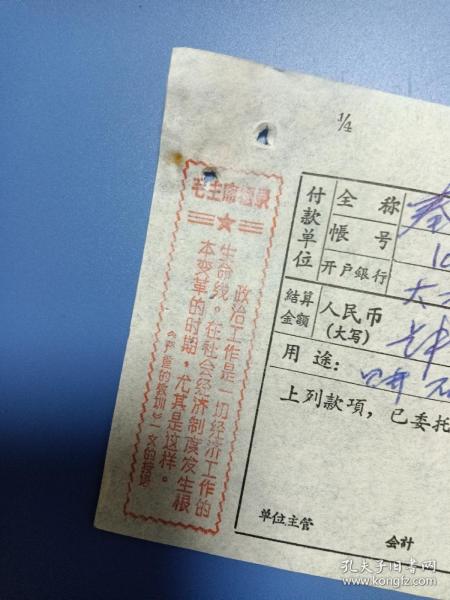 1/4
毛主席语录
政治工作是一切经济工作的
生命线。在社会经济制度发生根
本变革的时期，尤其是这样。
《严重的教训》一文的按语
付款单位
全称
帐号
开户銀行
结算金額
人民币
(大写)
用途：
上列款項，已委托
单位主管
会計
孔夫子旧书网
www.kongfz.com